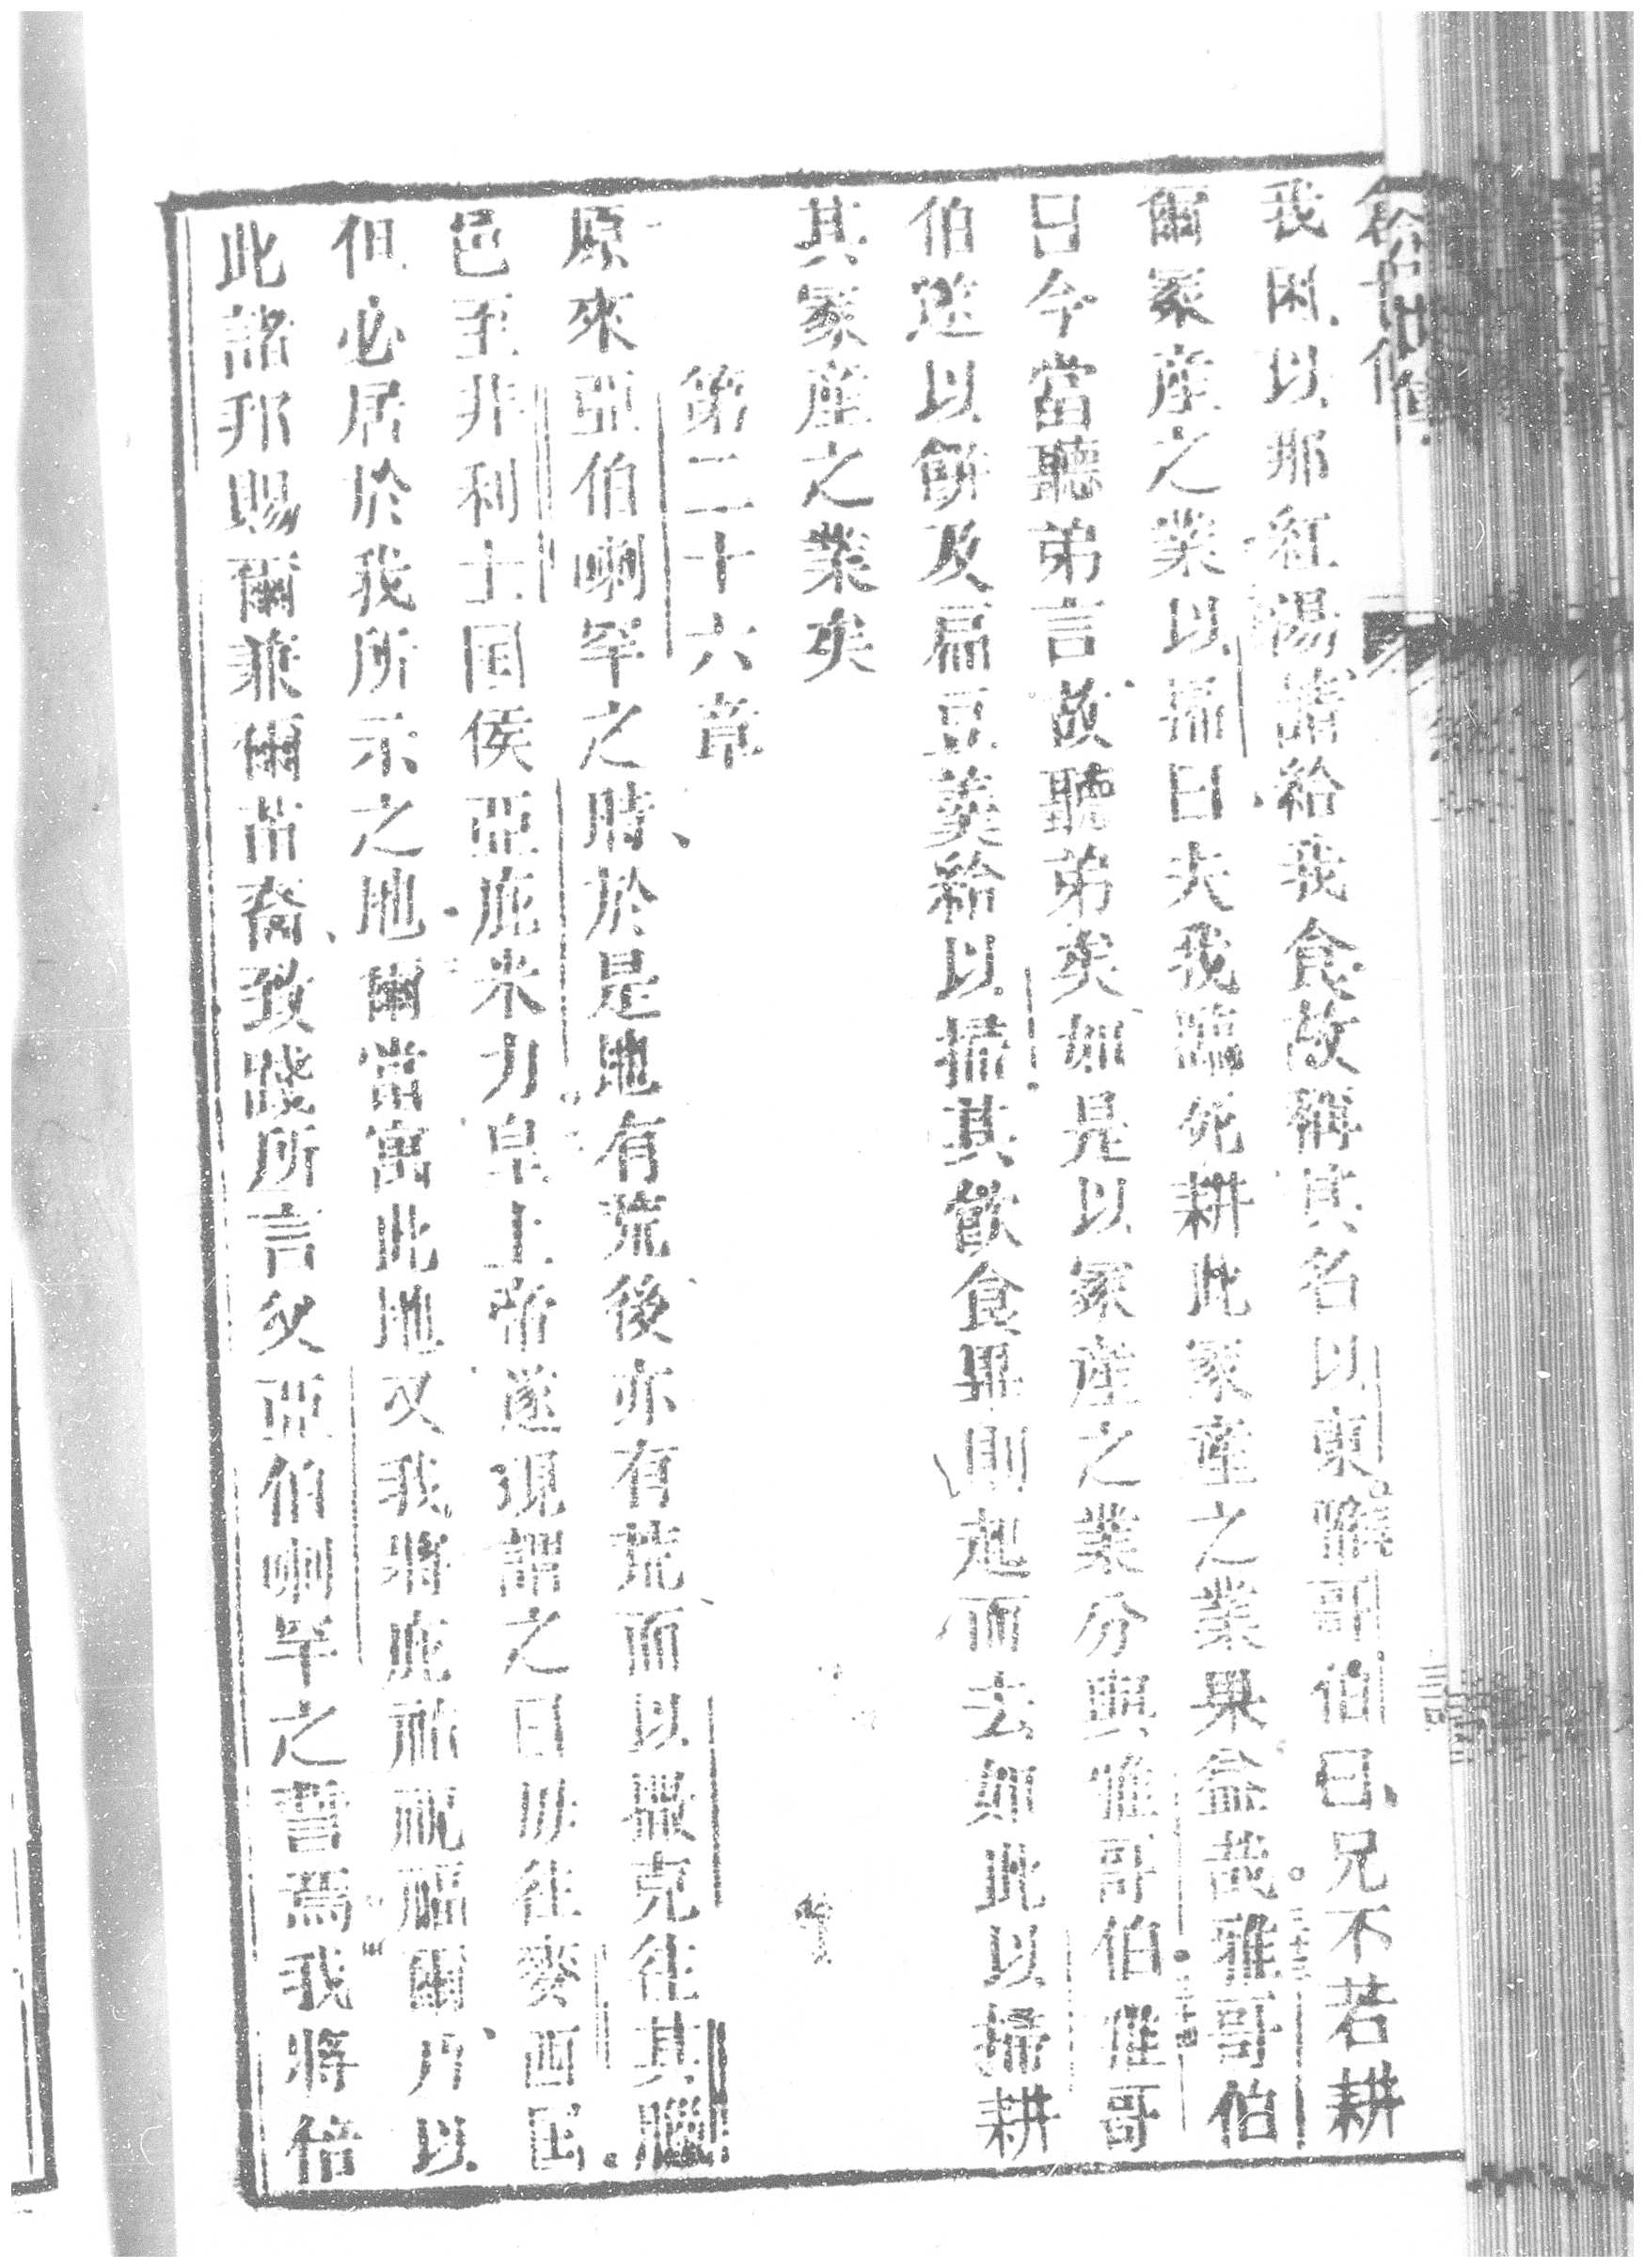 我困以那紅湯請給我食故稱其名以東雅哥伯曰兄不若耕
爾家產之業以掃曰夫我臨死耕此家產之業果益哉雅哥伯
曰今當聽弟言故聽弟矣如是以家產之業分與雅哥伯雅哥
伯遂以餅及扁豆羹給以掃其飲食畢則起而去如此以掃耕
其家產之業矣
第二十六章
原來亞伯喇罕之時於是地有荒後亦有荒而以撒克往其臘
邑至非利士國侯亞庇米力皇上帝遂現謂之曰毋往麥西國
但必居於我所示之地爾當寓此地又我將庇祐祝福爾乃以
此諸邦賜爾兼爾苗裔致踐所言與亞伯喇罕之誓焉我將倍